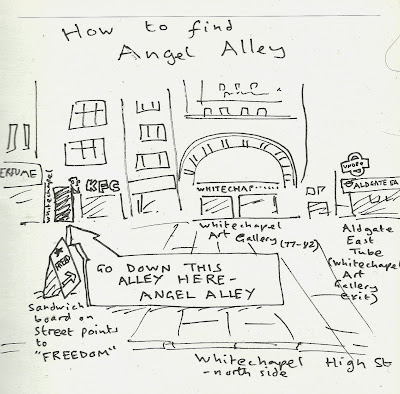 How to find
Angel Alley
ERFUME
Whitechapel
KFC
WHITECHAP......
UNDER
ALDGATE EA
Whitechapel
Art
Gallery (77-82)
Aldgate
East
Tube
(Whitechapel
Art
Gallery
exit)
GO DOWN THIS
ALLEY HERE-
ANGEL ALLEY
Sandwich
board on
street points
to
"FREEDOM"
Whitechapel High St
-north side